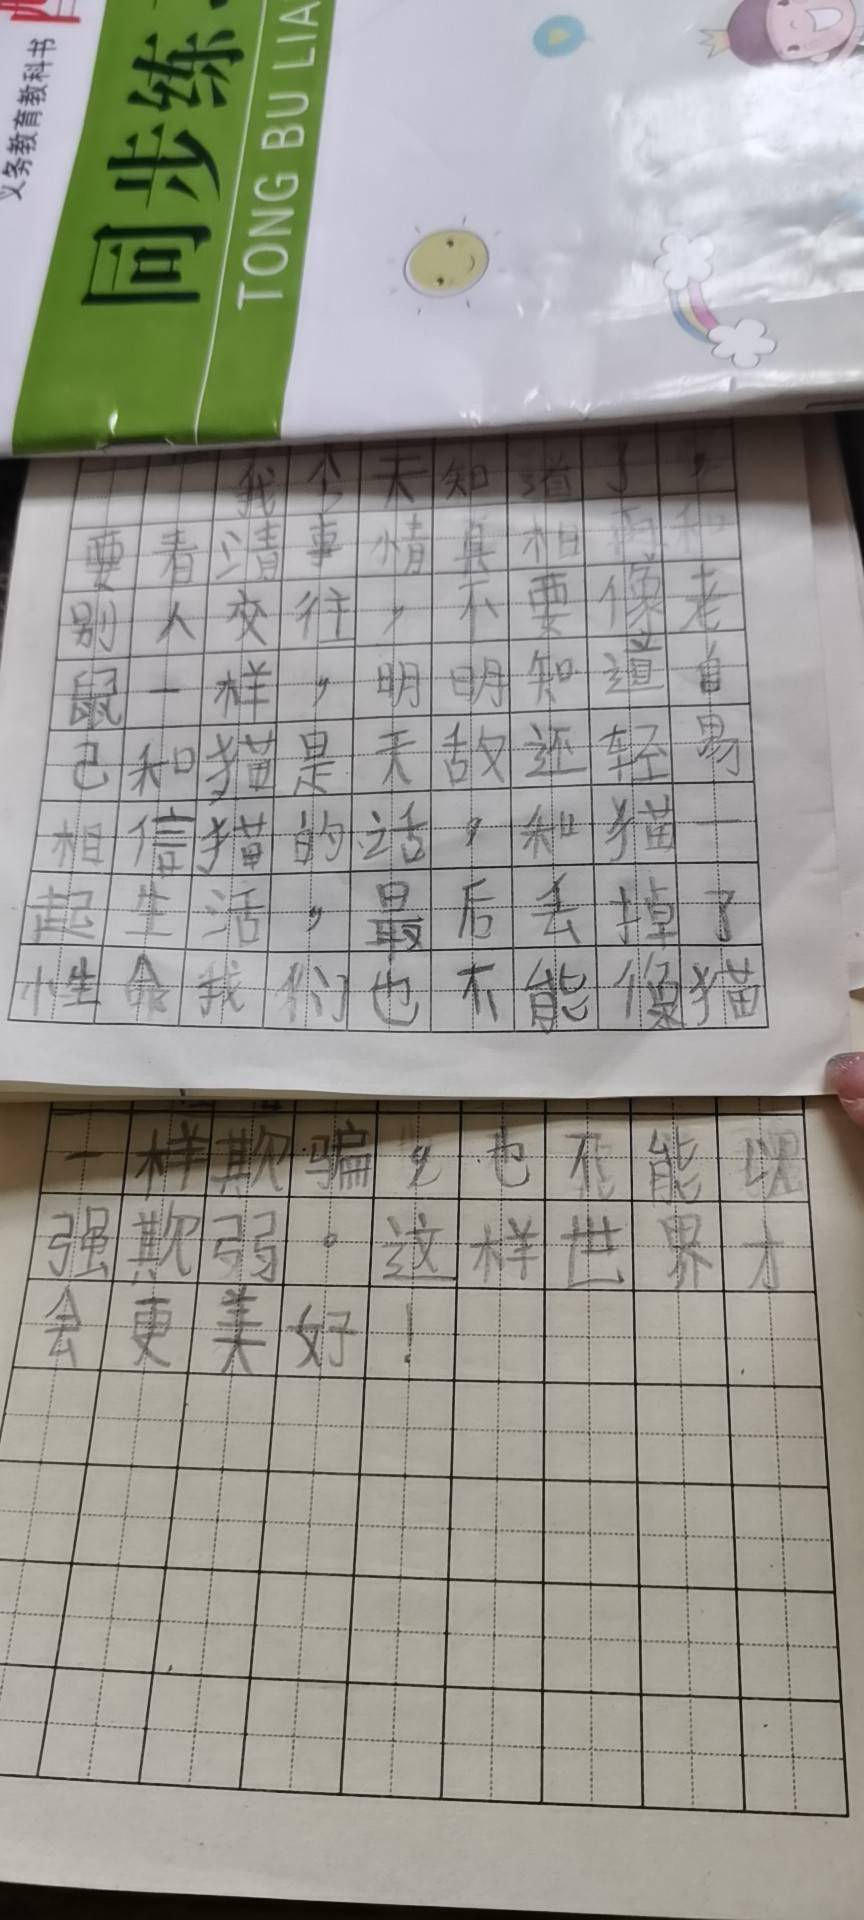 义务教育教科书
同步练
TONG BU LIA
我今天知道了，
要看清事情真相再和
别人交往，不要像老
鼠一样，明明知道自
己和猫是天敌还轻易
相信猫的话，和猫一
起生活，最后丢掉了
性命我们也不能像猫
一样欺骗，也不能以
强欺弱。这样世界才
会更美好！